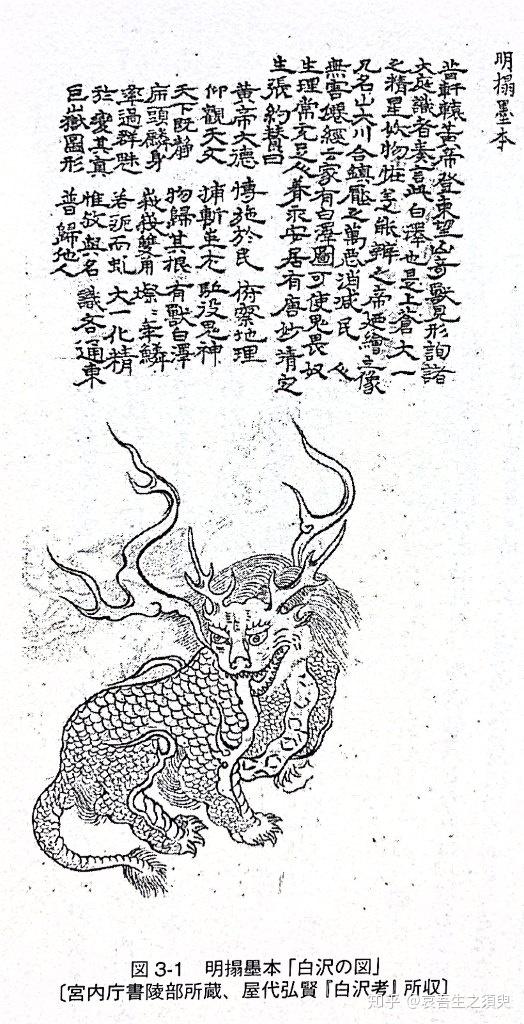 明搨墨本
昔軒轅黃帝登東望山奇獸見形詢諸
大庭識者奏言此白澤也是上蒼大一
之精星妖物恠等能辨之帝廼繪之像
凡名山大川合鎮厭之萬悪消滅民人
無害僊經云家有白澤圖可使鬼畏奴
生理常充足人眷永安居有唐妙清定
生張約賛曰
黃帝大德 博施於民 俯察地理
仰觀天文 捕斬蚩尤 駈役鬼神
天下既靜 物歸其根 有獸白澤
頭麟身 峩峩雙角 燦〻華鱗
過群 若 而虬 大一化精
變其真 惟故與名 識各通東
巨嶽圖形 普歸他人
図 3-1 明搨墨本「白沢の図」
〔宮内庁書陵部所蔵、屋代弘賢『白沢考』所収〕
知乎 @哀吾生之须臾